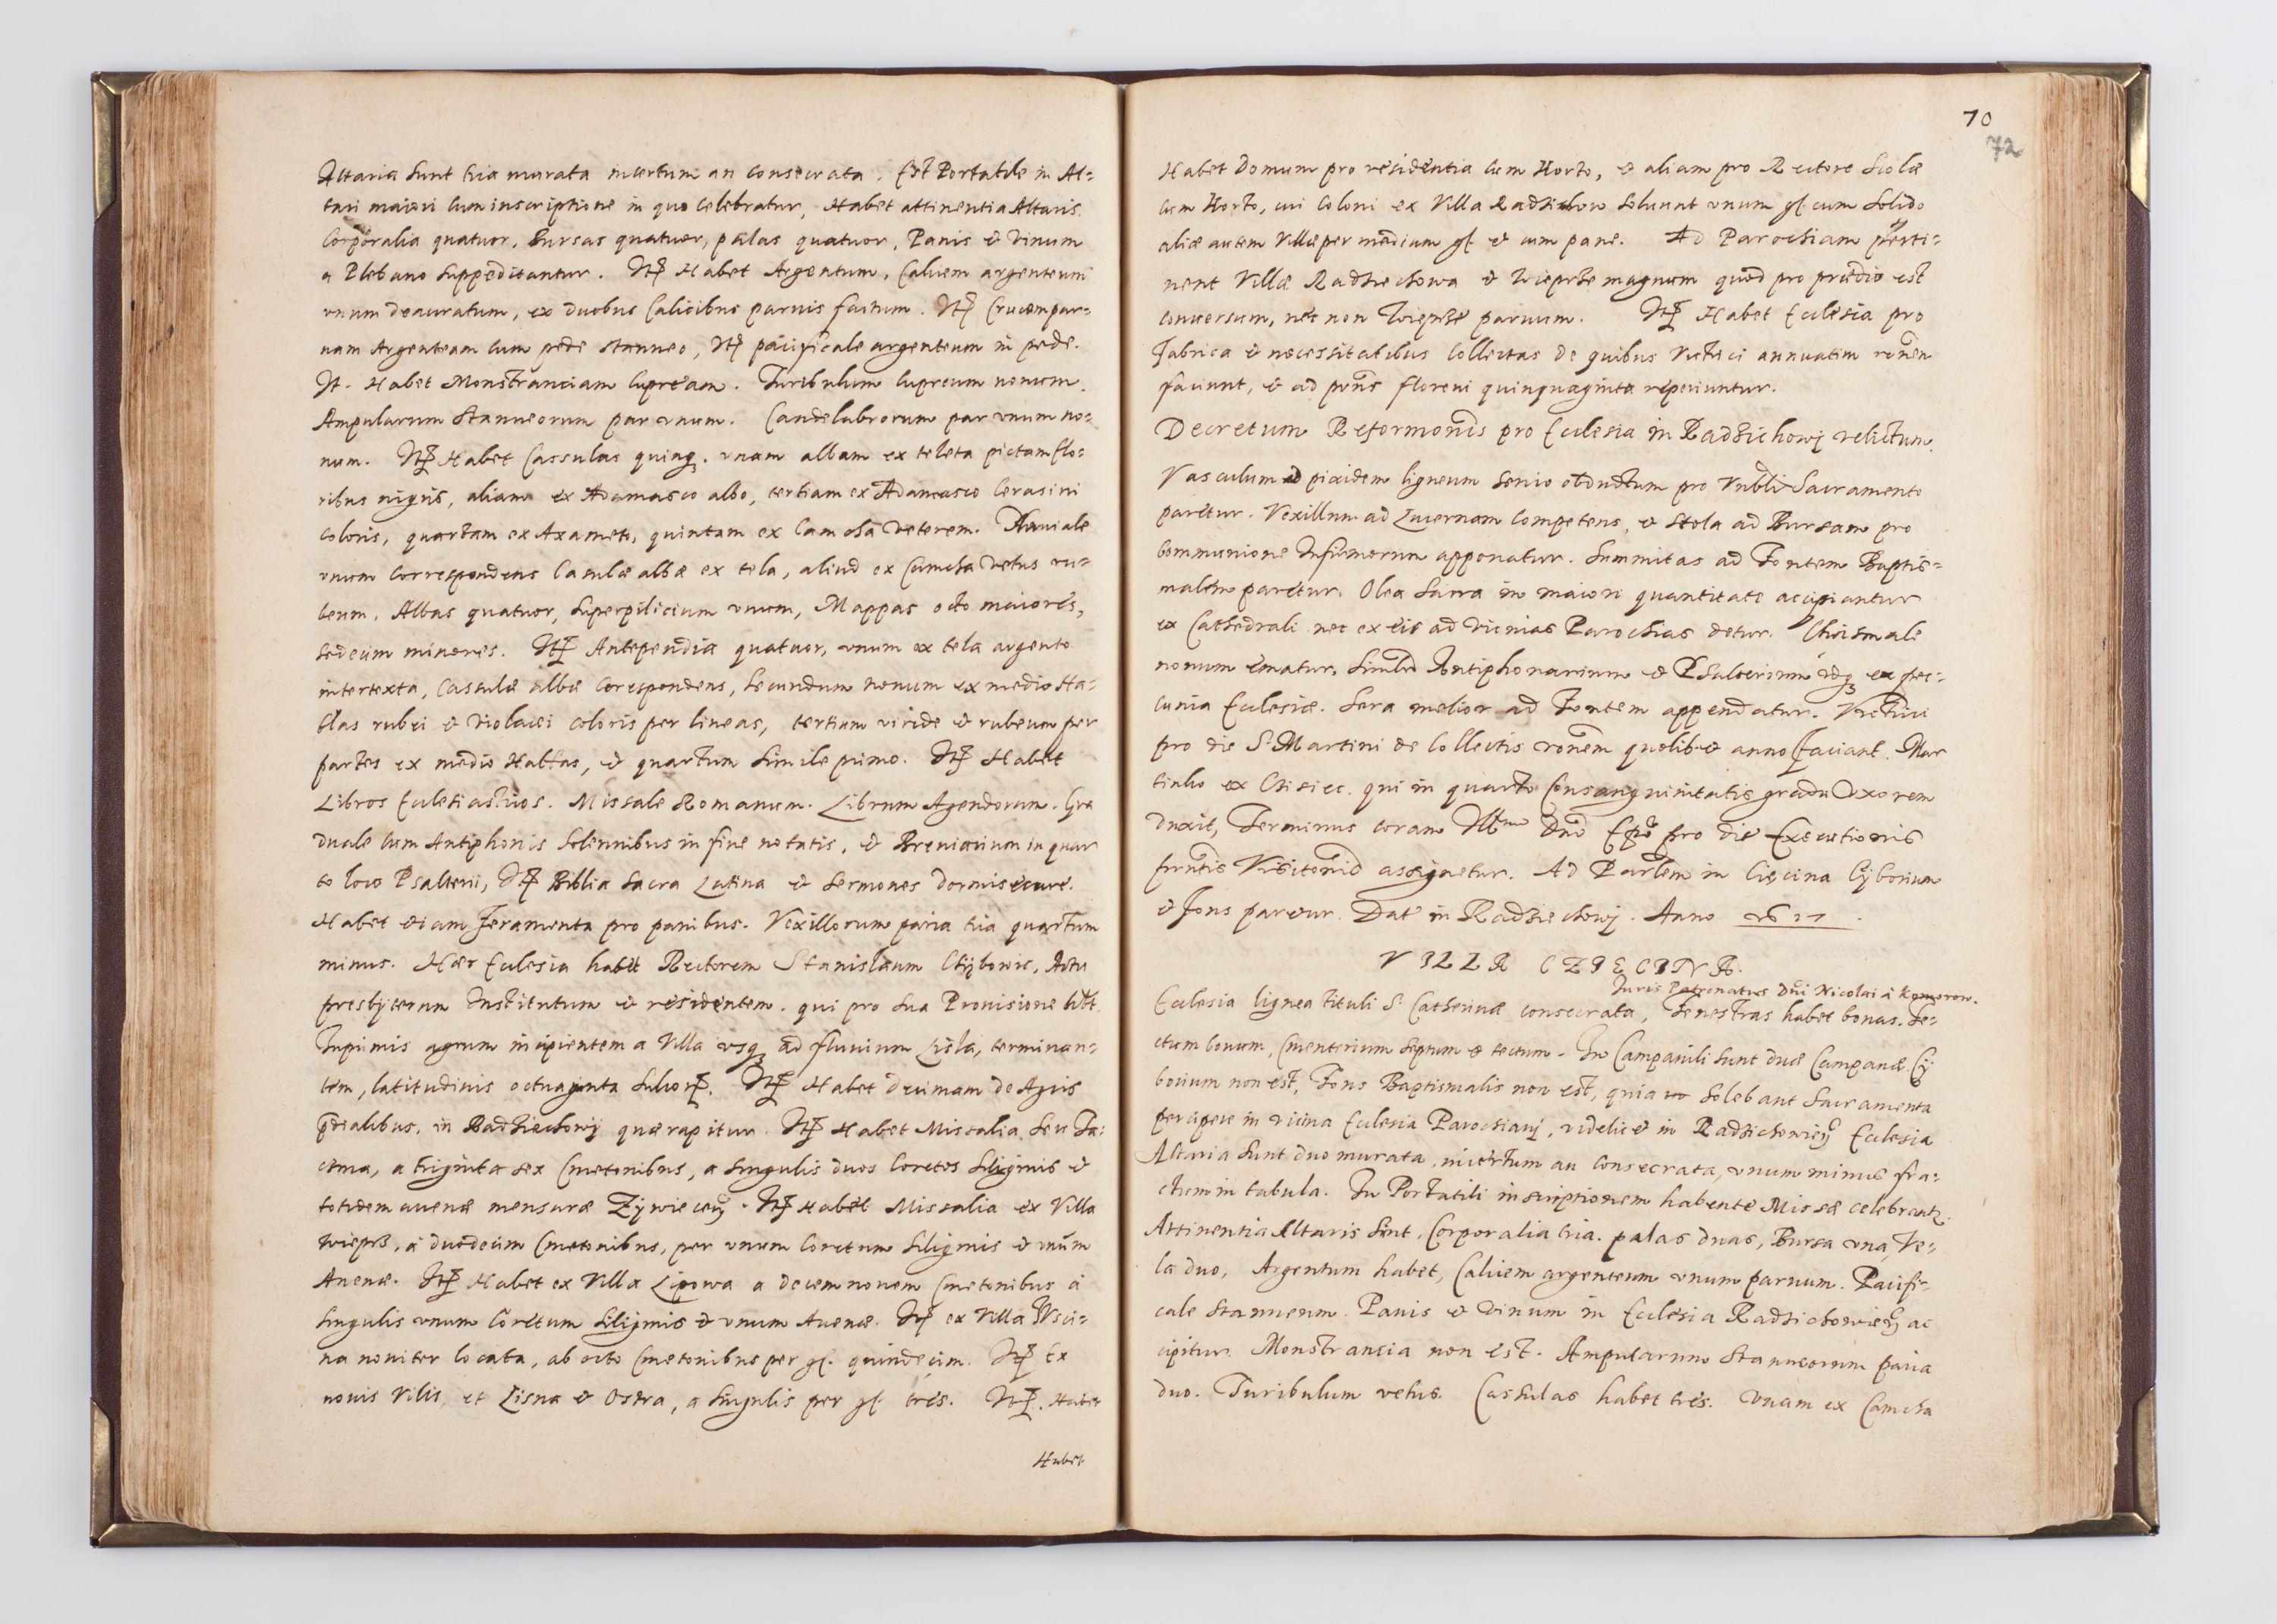 Altaria sunt tria murata incertum an consecrata. Est Portatile in Al=
tari maiori cum inscriptione in quo celebratur, Habet attinentia Altaris
Corporalia quatuor, Bursas quatuor, palas quatuor, Panis & Vinum
a Plebano suppeditantur. Itē Habet Argentum, Calicem argenteum
vnum deauratum, ex duobus Calicibus paruis factum. Itē Crucem par=
uam Argenteam cum pede stanneo, Itē pacificale argenteum in pede.
It. Habet Monstranciam cupream. Turibulum cupreum nouum.
Ampularum stanneorum par vnum. Candelabrorum par vnum no=
uum. Itē Habet Cassulas quinq. vnam albam ex teleta pictam flo=
ribus nigris, aliam ex Adamasco albo, tertiam ex Adamasco Cerasini
coloris, quartam ex Axameto, quintam ex Camcha veterem. Pluuiale
vnum correspondens Casulæ albæ ex tela, aliud ex Camcha vetus ru=
beum. Albas quatuor, superpilicium vnum, Mappas octo maiores,
sedecim minores. Itē Antependia quatuor, vnum ex tela argento
intertexta, Cassulæ albæ corespondens, secundum nouum ex medio Ha=
blas rubei & violacei coloris per lineas, tertium viride & rubeum per
partes ex medio Hablas, & quartum simile primo. Itē Habet
Libros Ecclesiasticos. Missale Romanum. Librum Agendorum. Gra
duale cum Antiphonis solennibus in fine notatis, & Breuiarium in quar
to loco Psalterii, Itē Biblia sacra Latina & sermones dormisecure.
Habet etiam feramenta pro panibus. Vexillorum paria tria quartum
minus. Hæc Ecclesia habet Rectorem Stanislaum Chybowic, Actu
presbyterum Institutum & residentem. qui pro sua Prouisione
Inprimis agrum incipientem a Villa vsq ad fluuium Lisla, terminan=
tem, latitudinis octuaginta sulcorū. Itē Habet decimam de Agris
prædialibus, in Radziechowy quæ rapitur. Itē Habet Missalia seu
a triginta sex Cmetonibus, a singulis duos Coretos siliginis &
totidem auenæ mensuræ Zywiecen. Itē Habet Missalia ex Villa
Wieprz, a duodecim Cmetonibus, per vnum Coretum siliginis & vnum
Auenæ. Itē Habet ex Villa Lipowa a decem nouem Cmetonibus a
singulis vnum Coretum siliginis & vnum Auenæ. Itē ex Villa Wsci=
na nouiter locata, ab octo Cmetonibus per gs. quindecim. Itē Ex
nouis Vilis, et Lisna & Ostra, a singulis per gs. tres. Itē. Habet
Habet
70
72
Habet Domum pro residentia cum Horto, & aliam pro Rectore Scolæ
cum Horto, cui Coloni ex Villa Radzichow soluunt vnum gs. cum solido
aliæ autem Villæ per medium gs. & cum pane. Ad Parochiam perti=
nent Villæ Radziechowa & Wieprze magnum quod pro prædio est
conuersum, nec non Wieprze paruum. Itē Habet Ecclesia pro
fabrica & necessitatibus Collectas de quibus Vitrici annuatim ronem
faciunt, & ad prns floreni quinquaginta reperiuntur.
Decretum Reformonis pro Ecclesia in Radzichowy relictum.
Vasculum ad pixidem ligneum senio obductum pro Vnbli Sacramento
paretur. Vexillum ad Lucernam competens, & stola ad Bursam pro
communione Infirmorum apponatur. Summitas ad Fontem Baptis=
malem paretur. Olea sacra in maiori quantitate accipiantur
ex Cathedrali nec ex eis ad vicinias Parochias detur. Chrismale
nouum ematur, simul Antiphonarium & Psalterium idq ex pec=
cunia Ecclesiæ. Sera melior ad Fontem appendatur. Vitrici
pro die S. Martini de Collectis ronem quolibet anno faciant. Mar
tinho ex Cisiec. qui in quarto Consanguinitatis gradu Vxorem
duxit, Terminus coram Illmo Dno Epo pro die Executionis
prntis Visitonis assignetur. Ad Parlem in Cięcina Cyborium
& fons paretur. Dat in Radziechowy. Anno 1617.
VILLA CZIECINA.
Iuris Patronatus Dni Nicolai a Komorow.
Ecclesia lignea tituli S. Catherinæ consecrata, Fenestras habet bonas. Te=
ctum bonum, Cmenterium septum & tectum. In Campanili sunt duæ Campanæ. Cy
borium non est, Fons Baptismalis non est, quia solebant Sacramenta
percipere in vicina Ecclesia Parochiani, videlicet in Radzichowien Ecclesia
Altaria sunt duo murata, incertum an consecrata, vnum minus fra=
ctum in tabula. In Portatili inscriptionem habente Missæ celebrant.
Attinentia Altaris sunt, Corporalia tria. palas duas, Bursa vna, Ve=
la duo, Argentum habet, Calicem argenteum vnum paruum. Pacifi=
cale stanneum. Panis & Vinum in Ecclesia Radzichowien ac
cipitur. Monstrancia non est. Ampularum stanneorum paria
duo. Turibulum vetus. Cassulas habet tres. Vnam ex Camcha